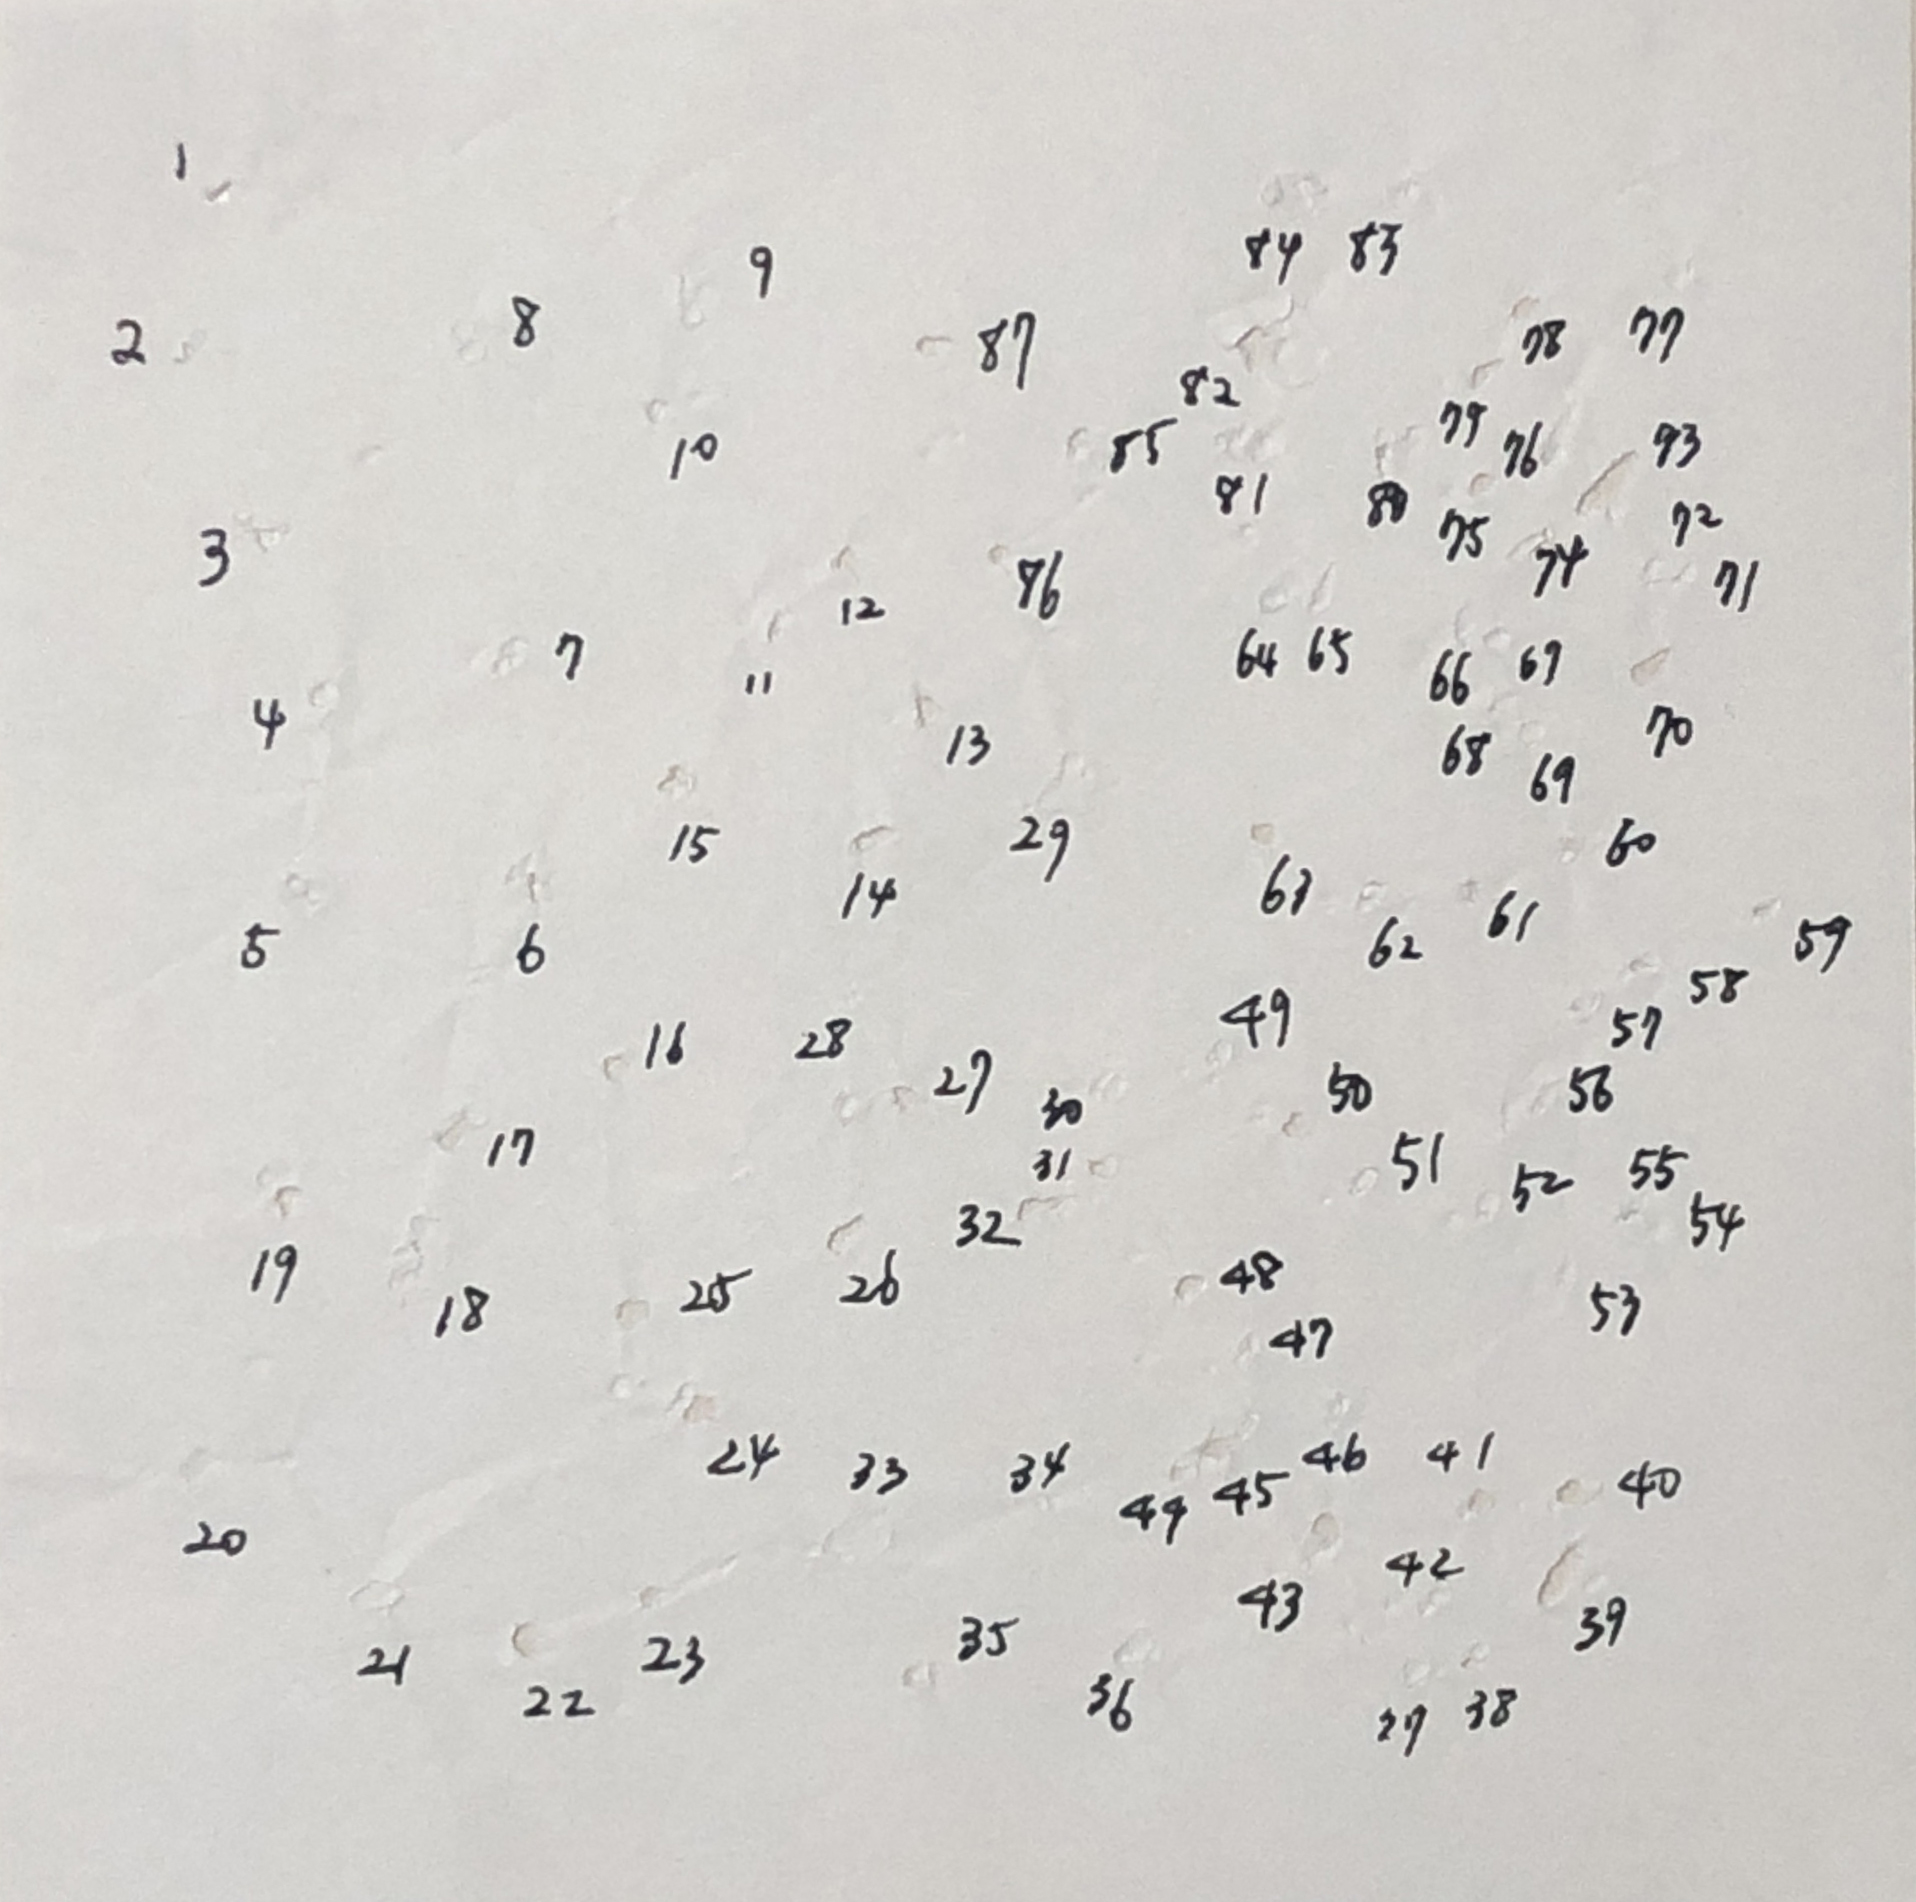 1
84 83
9
8 87 78 77
2
82
79 76 93
10 85
81 80 75 72
3 74 71
12 86
7 11 64 65 66 69
4 13 70
68 69
15 29 60
14 63 61
5 6 62 59
58
49 57
16 28
27 30 50 56
17 31 51 55
52
32 54
19 48
18 25 26 53
47
24 33 34 46 41 40
44 45
20
42
43
35 39
21 23
22 36 37 38